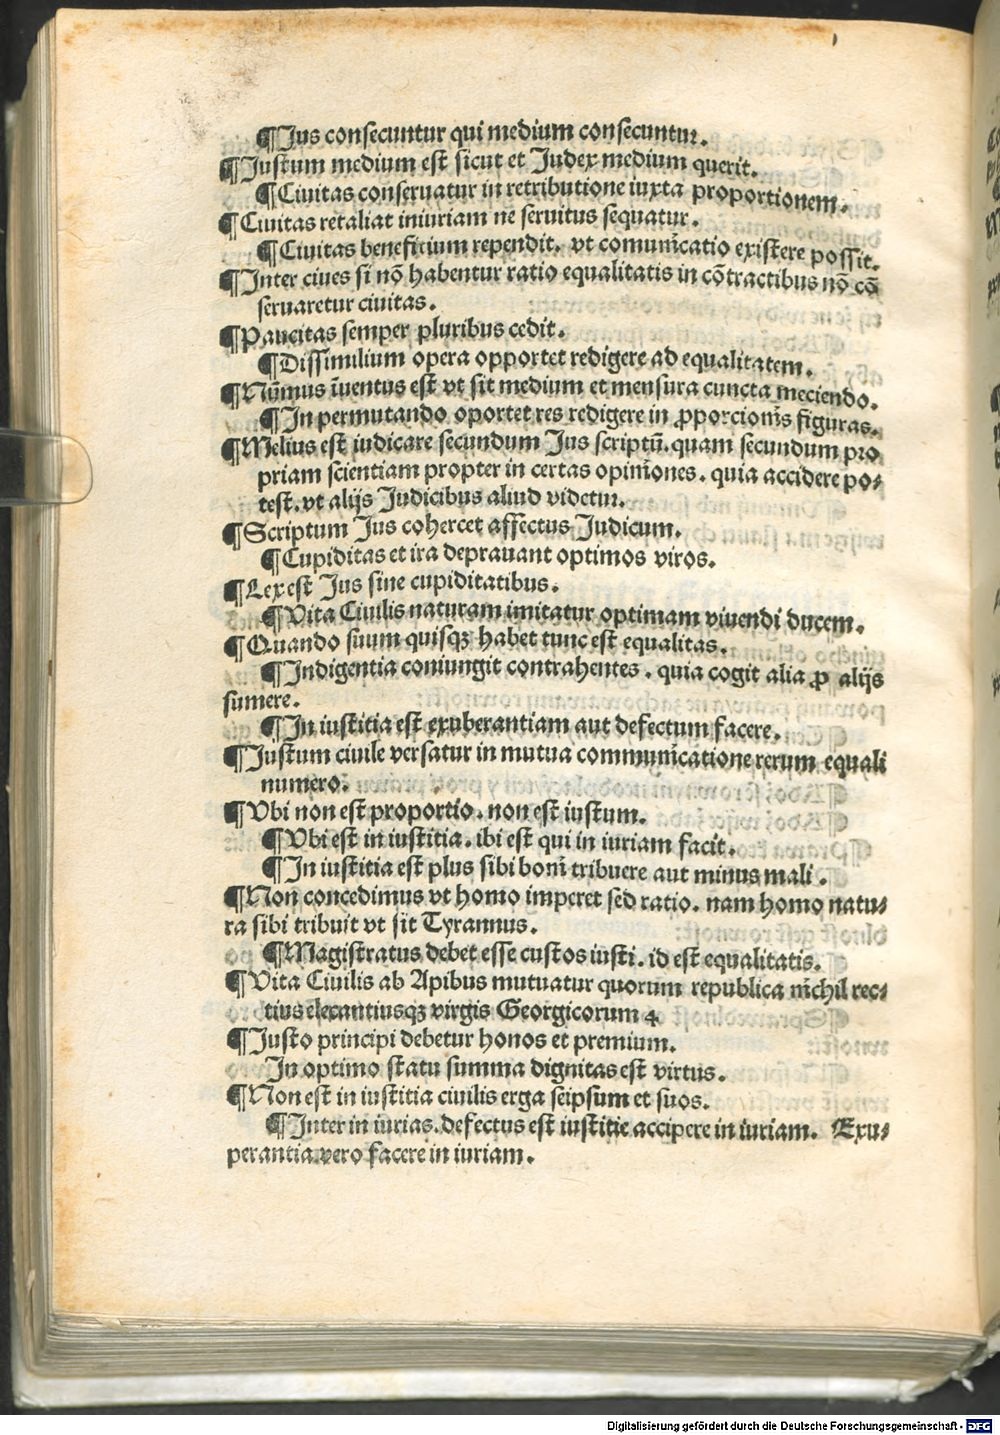 ¶Jus consecuntur qui medium consecuntur.
¶Justum medium est sicut et Judex medium querit.
¶Ciuitas conseruatur in retributione iuxta proportionem.
¶Ciuitas retaliat iniuriam ne seruitus sequatur.
¶Ciuitas beneficium rependit. vt comunicatio existere possit.
¶Inter ciues si nõ habentur ratio equalitatis in cõtractibus nõ cõ
seruaretur ciuitas.
¶Paucitas semper pluribus cedit.
¶Dissimilium opera opportet redigere ad equalitatem.
¶Nũmus ĩuentus est vt sit medium et mensura cuncta meciendo.
¶In permutando oportet res redigere in ꝓporcionis figuras.
¶Melius est iudicare secundum Jus scriptũ. quam secundum pro
priam scientiam propter in certas opiniones. quia accidere po⸗
test. vt alijs Judicibus aliud videtur.
¶Scriptum Jus cohercet affectus Judicum.
¶Cupiditas et ira deprauant optimos viros.
¶Lex est Jus sine cupiditatibus.
¶Vita Ciuilis naturam imitatur optimam viuendi ducem.
¶Quando suum quisqꝫ habet tunc est equalitas.
¶Indigentia coniungit contrahentes. quia cogit alia ꝓ alijs
sumere.
¶In iustitia est exuberantiam aut defectum facere.
¶Justum ciuile versatur in mutua communicatione rerum equali
numero.
¶Vbi non est proportio. non est iustum.
¶Vbi est in iustitia. ibi est qui in iuriam facit.
¶In iustitia est plus sibi boni tribuere aut minus mali.
¶Non concedimus vt homo imperet sed ratio. nam homo natu⸗
ra sibi tribuit vt sit Tyrannus.
¶Magistratus debet esse custos iusti. id est equalitatis.
¶Vita Ciuilis ab Apibus mutuatur quorum republica nichil rec⸗
tius elecantiusqꝫ virgis Georgicorum 4
¶Justo principi debetur honos et premium.
In optimo statu summa dignitas est virtus.
¶Non est in iustitia ciuilis erga seipsum et suos.
¶Inter in iurias. defectus est iustitie accipere in iuriam. Exu⸗
perantia vero facere in iuriam.
Digitalisierung gefördert durch die Deutsche Forschungsgemeinschaft - DFG